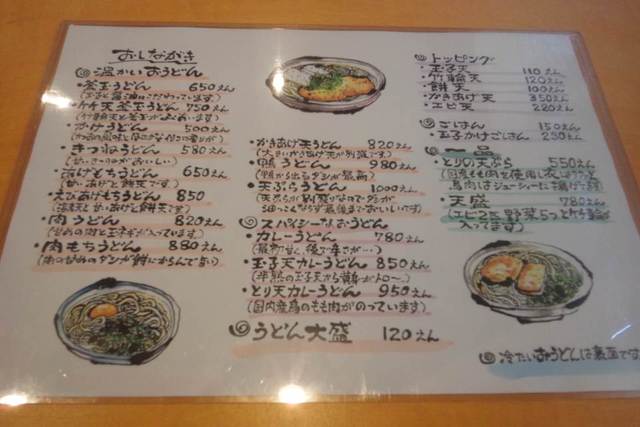 おしながき
温かいおうどん
・釜玉うどん 650えん
・竹天釜玉うどん 750えん
・かけうどん 500えん
・きつねうどん 580えん
・あげもちうどん 650えん
(甘いあげと餅天です)
・えびあげもちうどん 850
・肉うどん 820えん
(甘めの肉と玉ネギが入っています)
・肉もちうどん 880えん
・かきあげ天うどん 820えん
・鴨うどん 980えん
・天ぷらうどん 1000えん
(天ぷらが別盛りなのでダシが
スパイシーなおうどん
・カレーうどん 780えん
・玉子天カレーうどん 850えん
・とり天カレーうどん 950えん
(国内産鳥のもも肉がのっています)
うどん大盛 120えん
トッピング
・玉子天 110えん
・竹輪天 120えん
・餅天 100えん
・かきあげ天 350えん
・エビ天 220えん
ごはん 150えん
・玉子かけごはん 250えん
一品
・とりの天ぷら 550えん
鳥肉はジューシーに揚げてます
・天盛 780えん
入ってます)
冷たいおうどんは裏面です